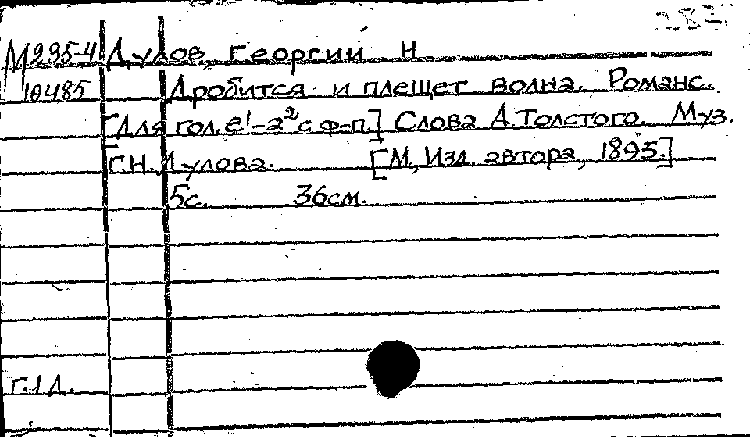 М 295-4 Дулов, Георгий Н.
10485 Дробится и плещет волна. Романс.
[Для гол. e¹-a² с ф-п.] Слова А. Толстого. Муз.
Г.Н. Дулова. [М., Изд. автора, 1895.]
5с. 36см.